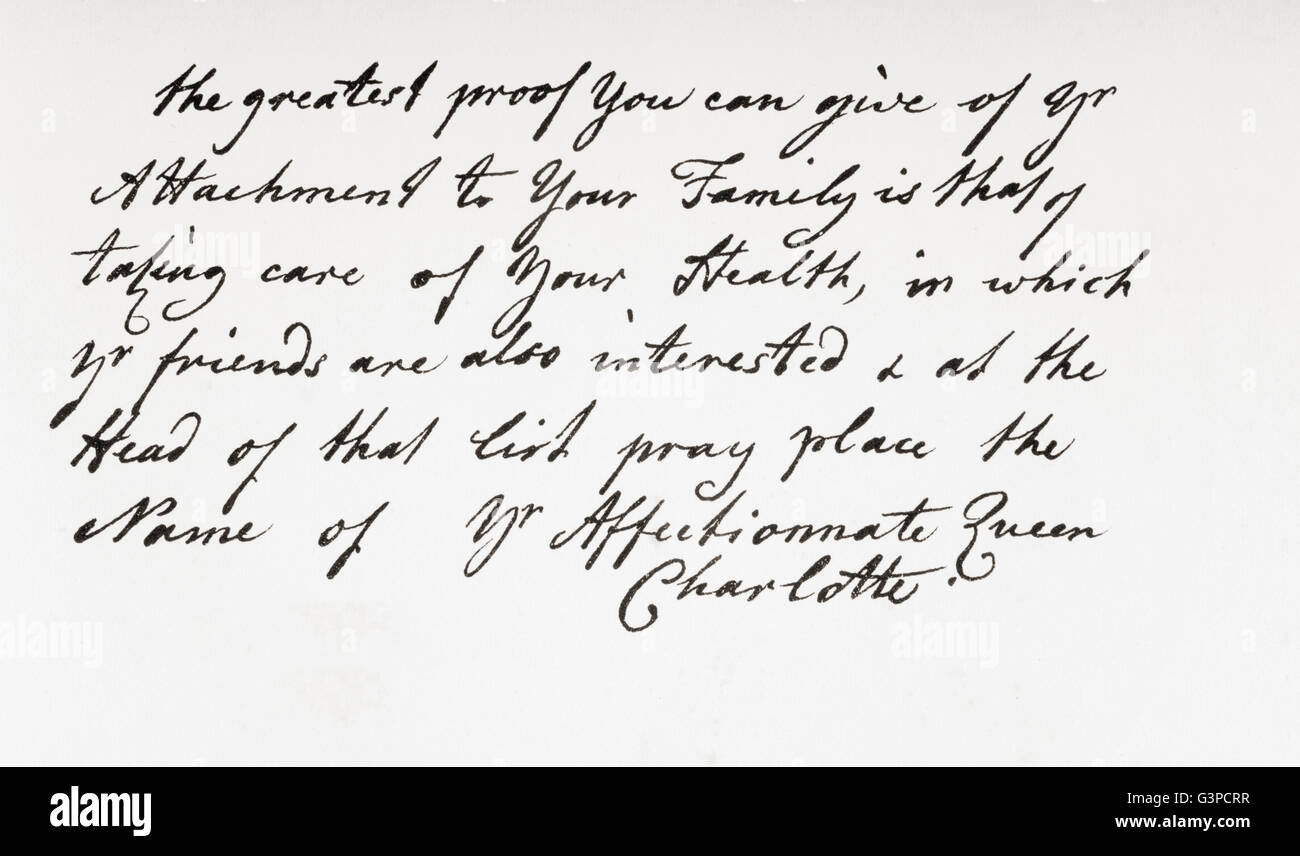 the greatest proof You can give of Yr
Attachment to Your Family is that of
taking care of Your Health, in which
yr friends are also interested & at the
Head of that list pray place the
Name of Yr Affectionnate Queen
Charlotte.
alamy
Image ID: G3PCRR
www.alamy.com